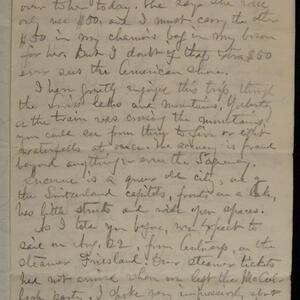 over to her today. She says she will
only use $50, and I must carry the other
$50 in my chamois bag in my bosom
for her. But I doubt if that extra $50
ever sees the American shore.
I have greatly enjoyed this trip through
the Swiss lakes and mountains. Yesterday
as the train was crossing the mountains,
you could see from thirty to five or eight
waterfalls at once. The scenery is grand
beyond anything even the Saguenay.
Lucerne is a queer old city, one of
the Switzerland capitals, fronts on a lake,
has little streets and wide open spaces.
As I told you before, we expect to
sail on Aug. 22, from Antwerp, on the
steamer Friesland. Our steamer tickets
had not arrived when we left the McCul-
loch party. I spoke very about